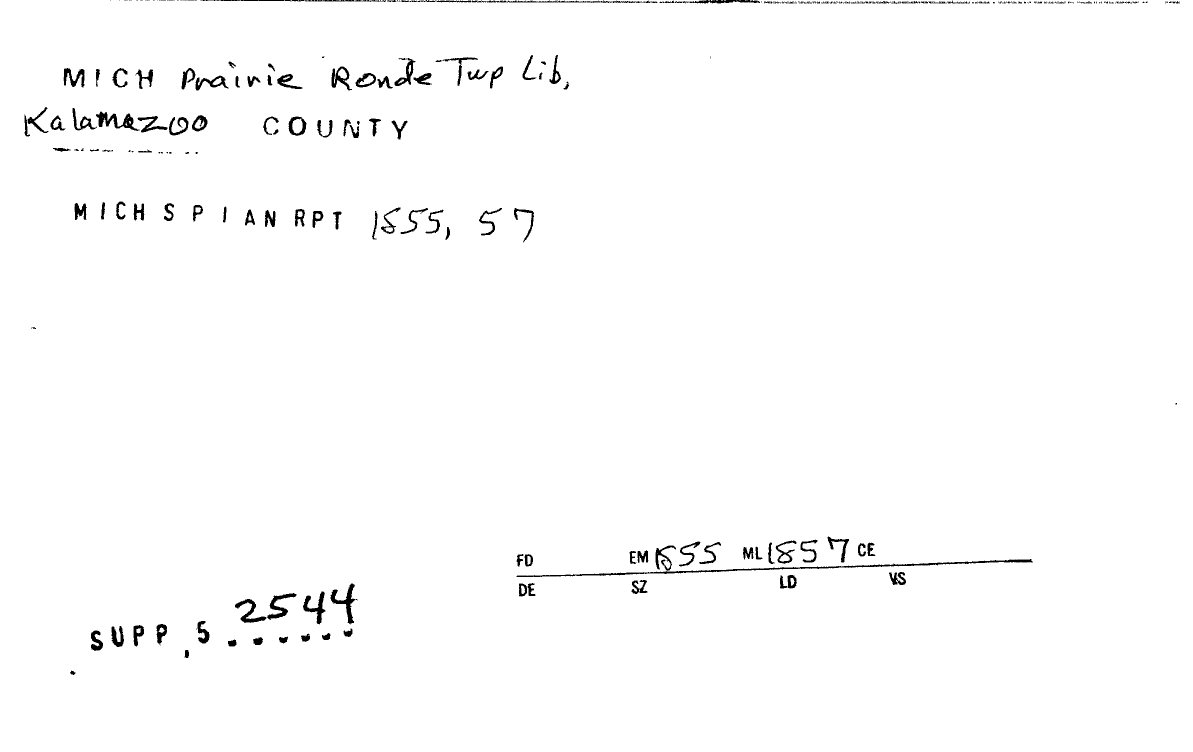 MICH Prairie Ronde Twp Lib,
Kalamazoo COUNTY
MICH S P I AN RPT 1855, 57
FD EM 1855 ML 1857 CE
DE SZ LD VS
SUPP, 5 2544